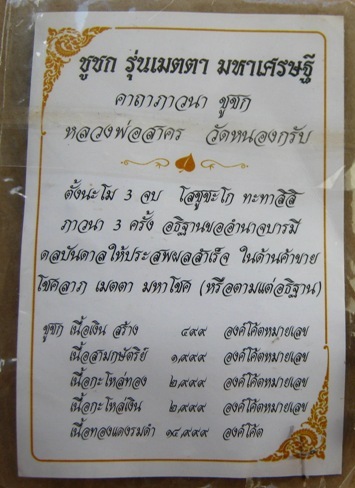 ชูชก รุ่นเมตตา มหาเศรษฐี
คาถาภาวนา ชูชก
หลวงพ่อสาคร วัดหนองกรับ
ตั้งนะโม 3 จบ โสชูชะโก ทะทาลิสิ
ภาวนา 3 ครั้ง อธิฐานขออำนาจบารมี
ดลบันดาลให้ประสพผลสำเร็จ ในด้านค้าขาย
โชคลาภ เมตตา มหาโชค (หรือตามแต่อธิฐาน)
ชูชก เนื้อเงิน สร้าง ๔๙๙ องค์โค๊ตหมายเลข
เนื้อสามกษัตริย์ ๑,๙๙๙ องค์โค๊ตหมายเลข
เนื้อกะไหล่ทอง ๒,๙๙๙ องค์โค๊ตหมายเลข
เนื้อกะไหล่เงิน ๒,๙๙๙ องค์โค๊ตหมายเลข
เนื้อทองแดงรมดำ ๑๔,๙๙๙ องค์โค๊ต